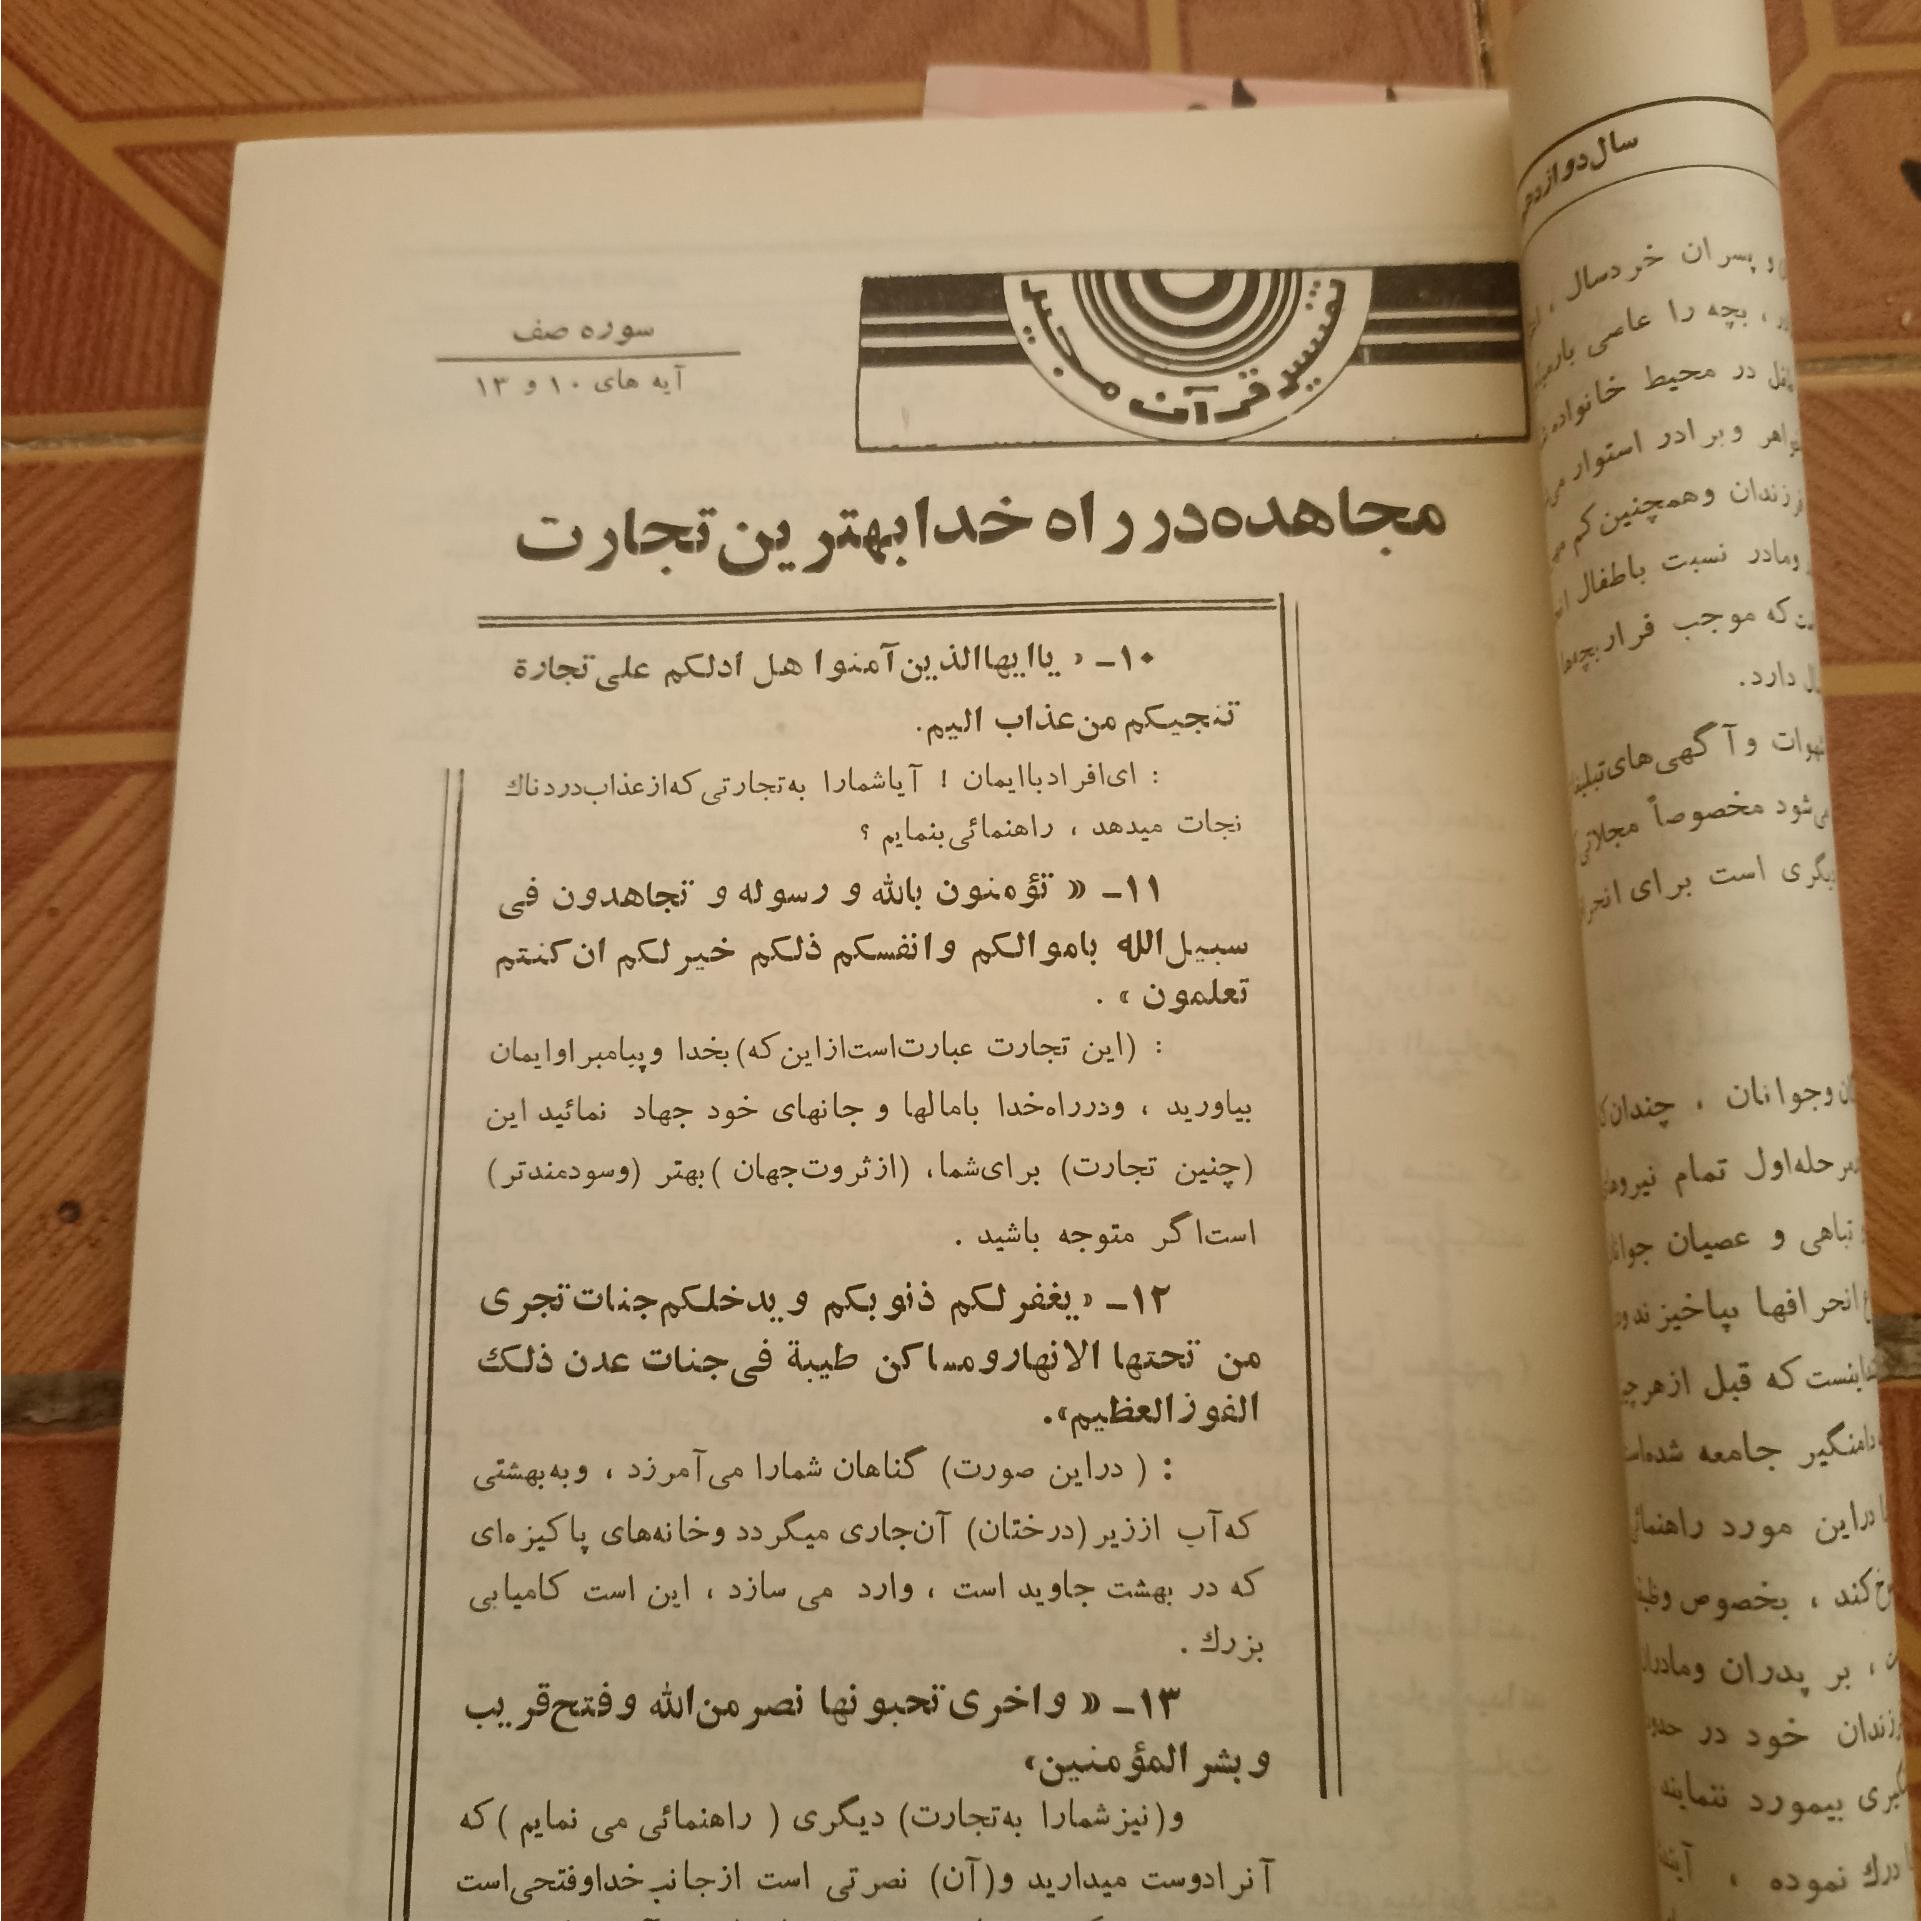 تفسیر قرآن مجید
سوره صف
آیه های ۱۰ و ۱۳
مجاهده در راه خدا بهترین تجارت
۱۰- « یا ایها الذین آمنوا هل ادلکم علی تجارة
تنجیکم من عذاب الیم.
: ای افراد با ایمان ! آیا شما را به تجارتی که از عذاب دردناك
نجات میدهد ، راهنمائی بنمایم ؟
۱۱- « تؤمنون بالله و رسوله و تجاهدون فی
سبیل الله باموالکم و انفسکم ذلکم خیر لکم ان کنتم
تعلمون » .
: (این تجارت عبارت است از این که) بخدا و پیامبر او ایمان
بیاورید ، و در راه خدا با مالها و جانهای خود جهاد نمائید این
(چنین تجارت) برای شما، (از ثروت جهان ) بهتر (و سودمندتر )
است اگر متوجه باشید .
۱۲- « یغفر لکم ذنوبکم و یدخلکم جنات تجری
من تحتها الانهار و مساکن طیبة فی جنات عدن ذلک
الفوز العظیم».
: ( در این صورت) گناهان شما را می آمرزد ، و به بهشتی
که آب از زیر (درختان) آن جاری میگردد و خانه های پاکیزه ای
که در بهشت جاوید است ، وارد می سازد ، این است کامیابی
بزرك .
۱۳- « و اخری تحبونها نصر من الله و فتح قریب
و بشر المؤمنین»
و (نیز شما را به تجارت) دیگری ( راهنمائی می نمایم ) که
آنرا دوست میدارید و (آن) نصرتی است از جانب خدا و فتحی است
سال دوازدهم
و پسران خردسال ،
، بچه را عاصی
در محیط خانواده
و برادر استوار
فرزندان و همچنین کم
و مادر نسبت باطفال
که موجب فرار بچه ها
دارد.
شهوات و آگهی های
می شود مخصوصاً مجلاتی
دیگری است برای
و جوانان ، چندان
مرحله اول تمام
تباهی و عصیان
انحرافها بپاخیزند
که قبل از هر
دامنگیر جامعه شده
در این مورد
کند ، بخصوص
، بر پدران و
فرزندان خود در
بیمورد ننمایند
درك نموده ،